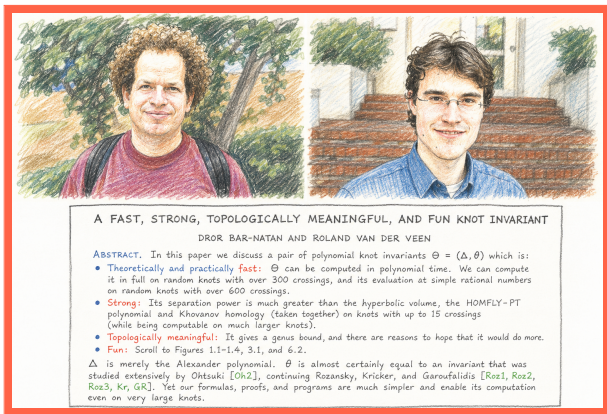 A FAST, STRONG, TOPOLOGICALLY MEANINGFUL, AND FUN KNOT INVARIANT
DROR BAR-NATAN AND ROLAND VAN DER VEEN
ABSTRACT. In this paper we discuss a pair of polynomial knot invariants Θ = (Δ, θ) which is:
• Theoretically and practically fast: Θ can be computed in polynomial time. We can compute
it in full on random knots with over 300 crossings, and its evaluation at simple rational numbers
on random knots with over 600 crossings.
• Strong: Its separation power is much greater than the hyperbolic volume, the HOMFLY-PT
polynomial and Khovanov homology (taken together) on knots with up to 15 crossings
(while being computable on much larger knots).
• Topologically meaningful: It gives a genus bound, and there are reasons to hope that it would do more.
• Fun: Scroll to Figures 1.1-1.4, 3.1, and 6.2.
Δ is merely the Alexander polynomial. θ is almost certainly equal to an invariant that was
studied extensively by Ohtsuki [Oh2], continuing Rozansky, Kricker, and Garoufalidis [Roz1, Roz2,
Roz3, Kr, GR]. Yet our formulas, proofs, and programs are much simpler and enable its computation
even on very large knots.